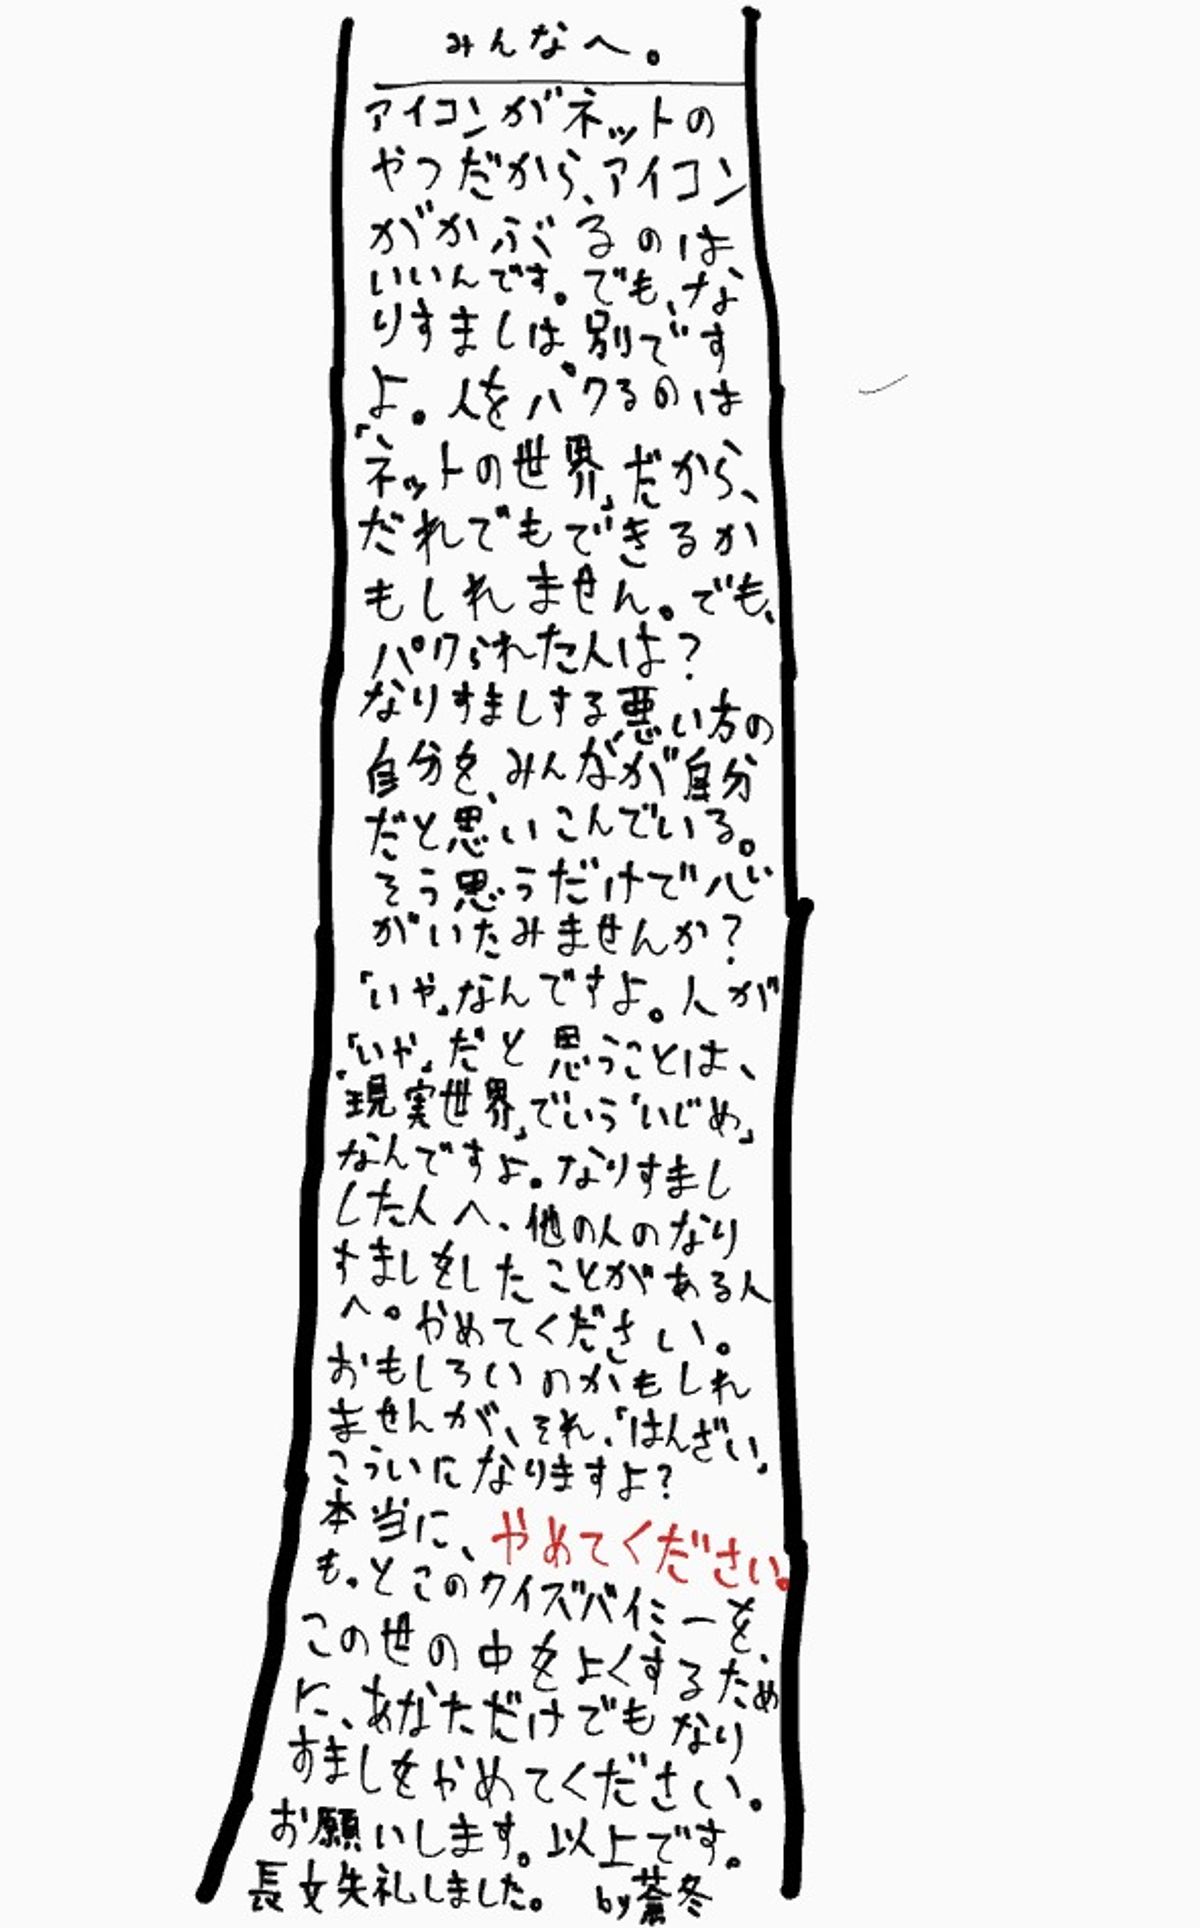 みんなへ。
アイコンがネットの
やつだから、アイコン
がかぶるのは、
いいんです。でも、な
りすましは別です
よ。人をパクるのは
「ネットの世界」だから、
だれでもできるか
もしれません。でも、
パクられた人は?
なりすましする悪い方の
自分を、みんなが自分
だと思いこんでいる。
そう思うだけで心
がいたみませんか?
「いや」なんですよ。人が
「いや」だと思うことは、
「現実世界」でいう「いじめ」
なんですよ。なりすまし
した人へ、他の人のなり
すましをしたことがある人
へ。やめてください。
おもしろいのかもしれ
ませんが、それ、「はんざい」
こういになりますよ?
本当に、やめてください。
も。とこのクイズバイミーを、
この世の中をよくするため
に、あなただけでもなり
すましをやめてください。
お願いします。以上です。
長文失礼しました。 by蒼冬